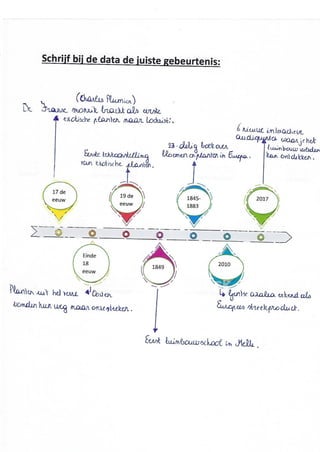 Schrijf bij de data de juiste gebeurtenis:
(Charles Plumier)
De Franse monnik bracht als eerste
exotische planten naar Lochristi.
6 nieuwe interactieve
audiopunten waar je het
tuinbouw verleden
kan ontdekken.
23-delig boek over
bloemen en planten in Europa.
Eerste tentoonstelling
van exotische planten.
17 de
eeuw
19 de
eeuw
1845-
1883
2017
Einde
18
eeuw
1849
2010
Planten uit het verre Oosten
vonden hun weg naar onze streken.
Gentse azalea erkend als
Europees streekproduct.
Eerst tuinbouwschool in Melle.